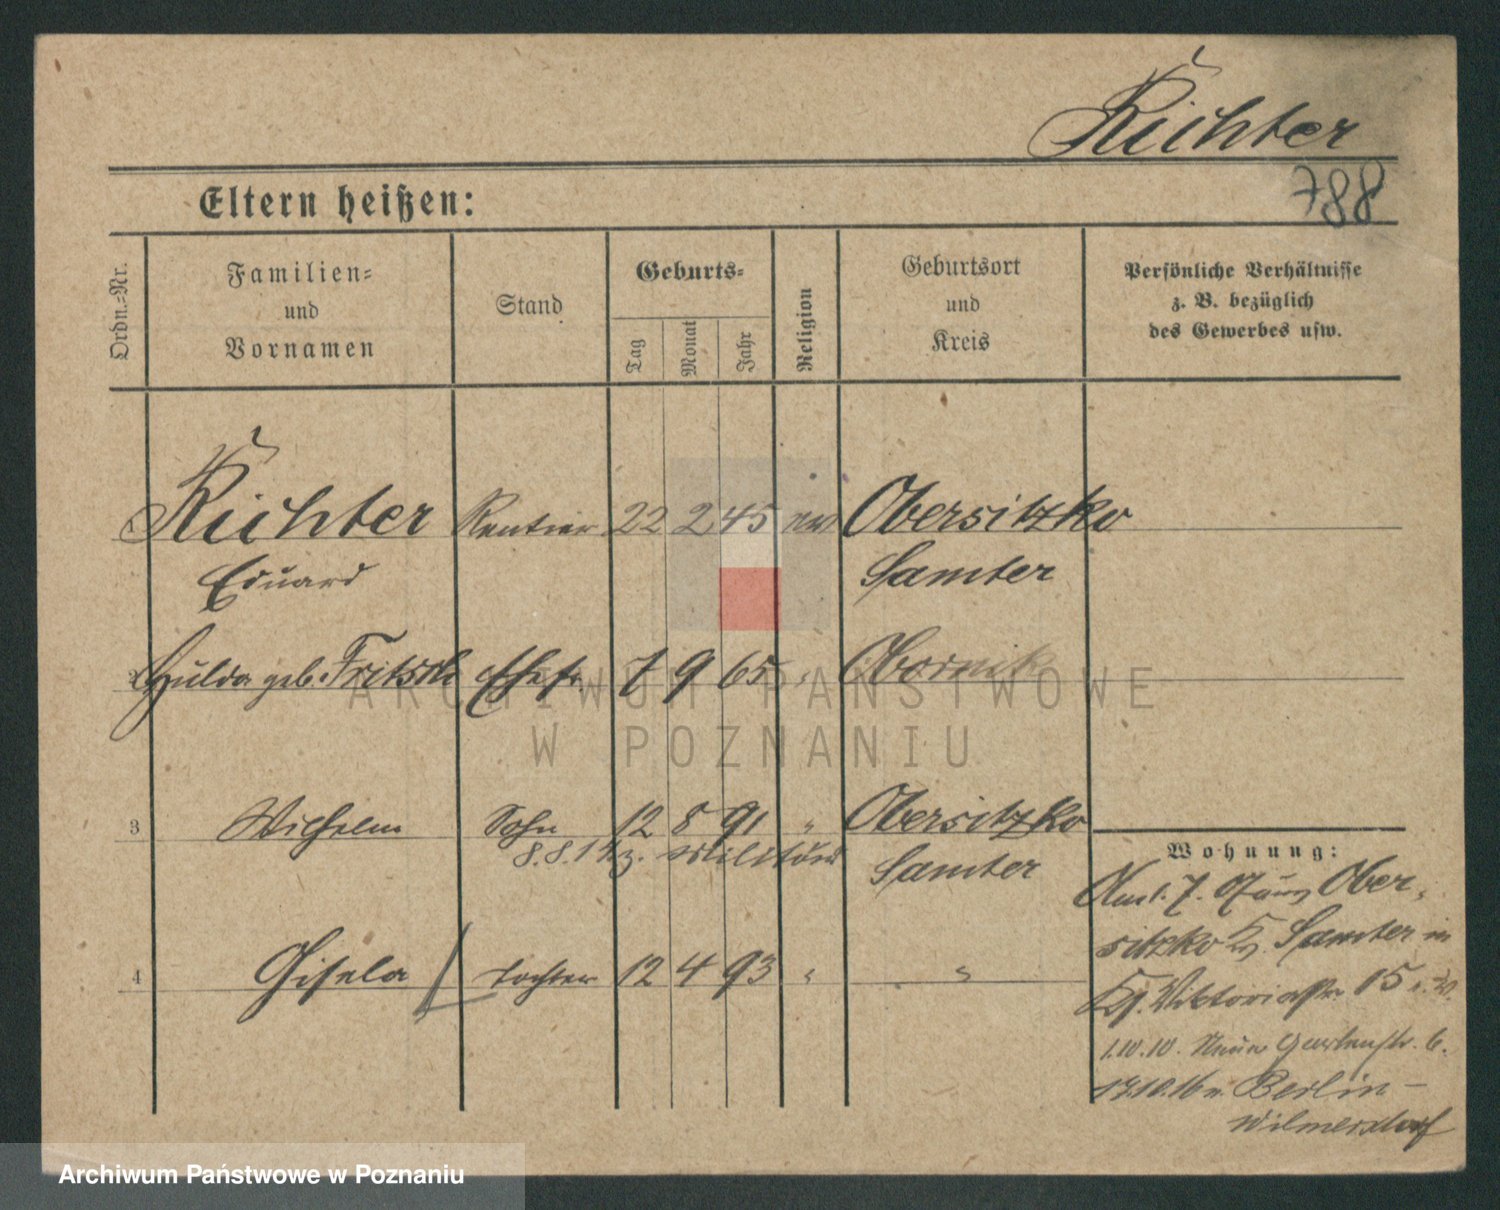 Richter
788
Eltern heißen:
Ordn.-Nr.
Familien-
und
Vornamen
Stand
Geburts-
Tag
Monat
Jahr
Religion
Geburtsort
und
Kreis
Persönliche Verhältnisse
z. B. bezüglich
des Gewerbes usw.
1 Richter Rentier 22 2 45 Obersitzko
Eduard Samter
2 Hulda geb. Fritsch Ehefr. 7 9 65 " Obornik
3 Wilhelm Sohn 12 8 91 " Obersitzko
8.8.14 z. Militär Samter
4 Gisela Tochter 12 4 93 " "
Wohnung:
7. 07 aus Ober-
sitzko Kr. Samter in
Viktoriastr. 15
1.10.10. Neue Gartenstr. 6.
17.10.16 n. Berlin-
Wilmersdorf
ARCHIWUM PAŃSTWOWE
W POZNANIU
Archiwum Państwowe w Poznaniu